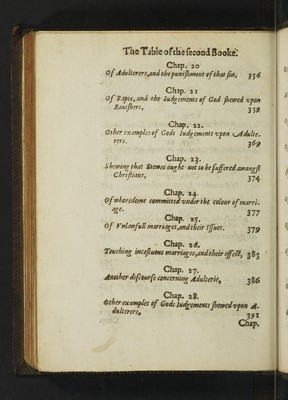 The Table of the second Booke.
Chap. 20
Of Adulterers, and the punishment of that sin. 356
Chap. 21
Of Rapes, and the Iudgements of God shewed vpon
Rauishers. 359
Chap. 22.
Other examples of Gods Iudgements vpon Adulte-
rers. 369
Chap. 23.
Shewing that Stewes ought not to be suffered amongst
Christians, 374
Chap. 24.
Of whoredome committed vnder the colour of marri-
age. 377
Chap. 25.
Of Vnlawfull marriages, and their Issues. 379
Chap. 26.
Touching incestuous marriages, and their effects, 383
Chap. 27.
Another discourse concerning Adulterie, 386
Chap. 28.
Other examples of Gods Iudgements shewed vpon A-
dulterers, 391
Chap.